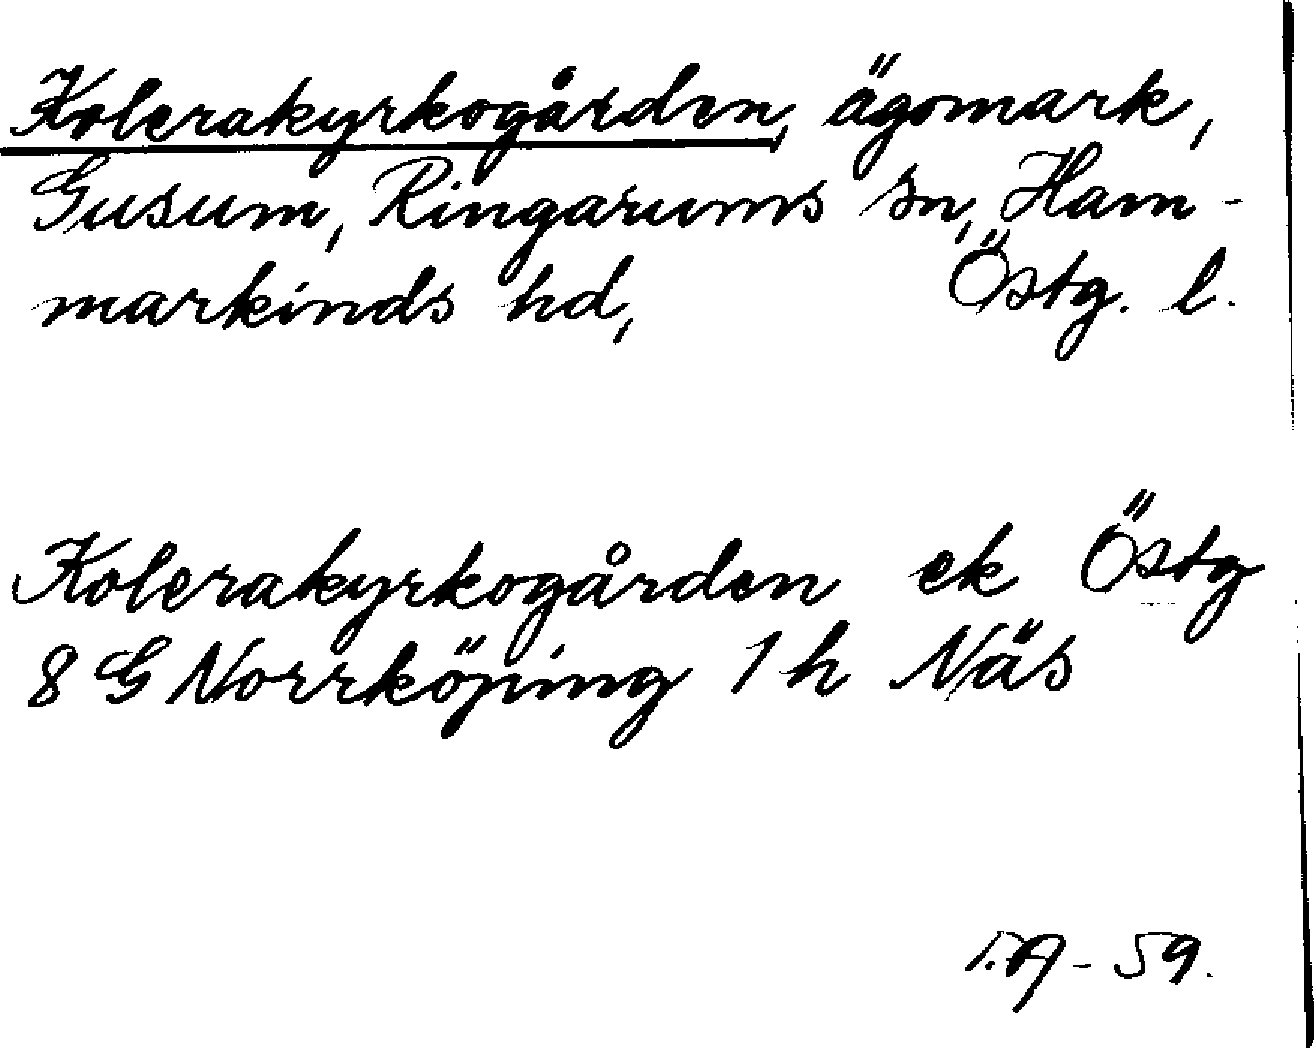 Kolerakyrkogården, ägomark,
Gusum, Ringarums sn, Ham-
markinds hd, Östg. l.
Kolerakyrkogården ek Östg
8 G Norrköping 1 h Näs
- 59.